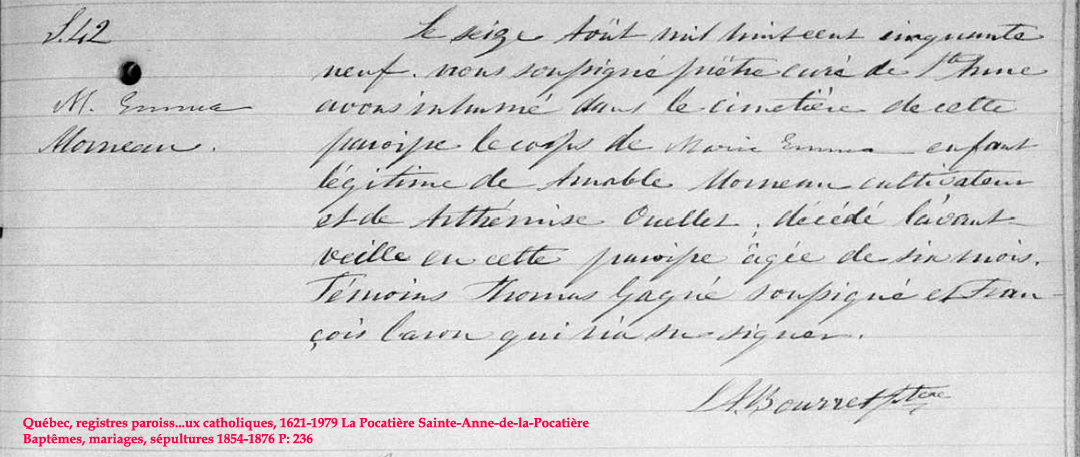 S.42
M. Emma
Morneau.
Le seize Août mil huit cent cinquante
neuf. nous soussigné prêtre curé de Ste Anne
avons inhumé dans le cimetière de cette
paroisse le corps de Marie Emma enfant
légitime de Amable Morneau cultivateur
et de Arthémise Ouellet, décédé l'avant
veille en cette paroisse âgée de six mois.
Témoins Thomas Gagné soussigné et Fran-
çois Caron qui n'a su signer.
Bourret Ptre
Québec, registres paroiss...ux catholiques, 1621-1979 La Pocatière Sainte-Anne-de-la-Pocatière
Baptêmes, mariages, sépultures 1854-1876 P: 236